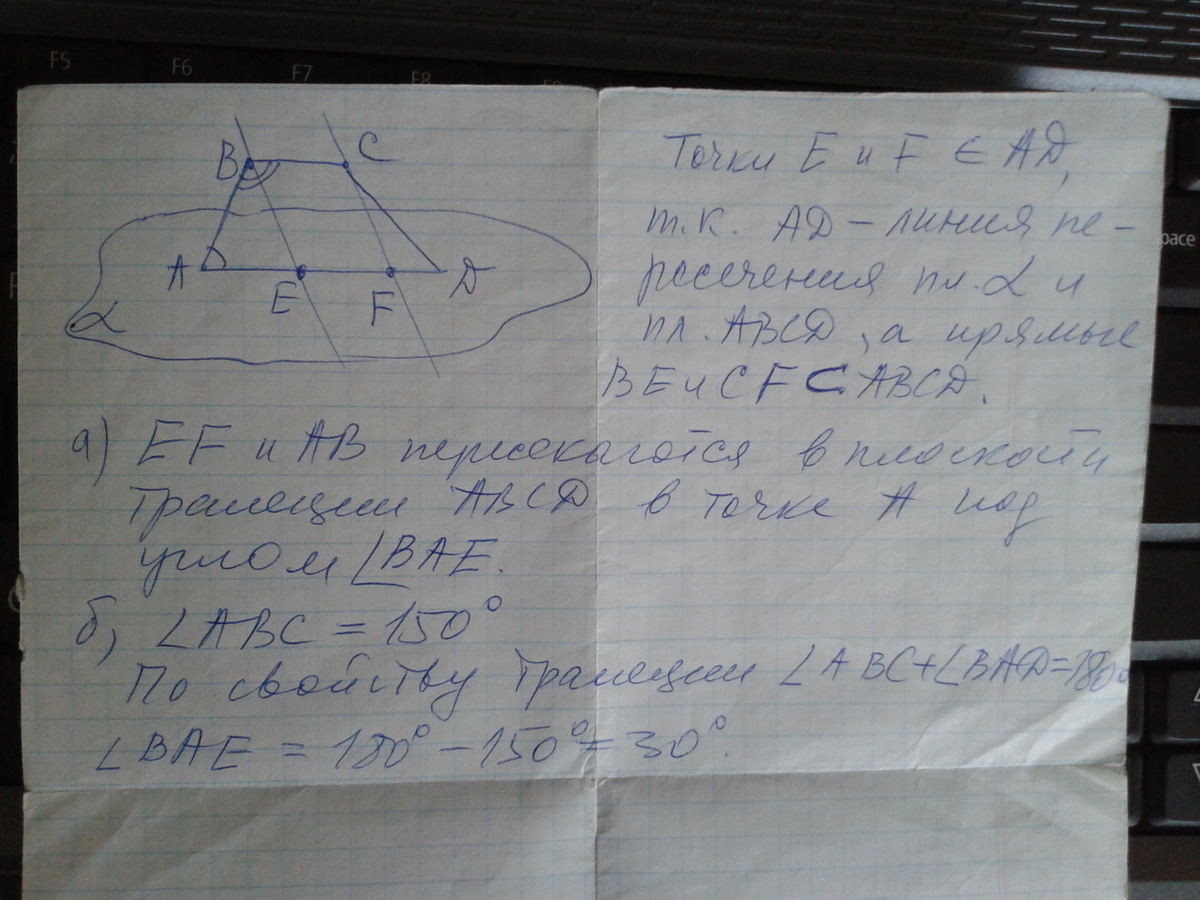 F5
F6
F7
F8
B
C
A
E
F
D
α
Точки E и F ∈ AD,
т.к. AD – линия пе-
ресечения пл. α и
пл. ABCD, а прямые
BE и CF ⊂ ABCD.
а) EF и AB пересекаются в плоскости
трапеции ABCD в точке A под
углом ∠BAE.
б) ∠ABC = 150°
По свойству трапеции ∠ABC+∠BAD=180°
∠BAE = 180° – 150° = 30°.
pace